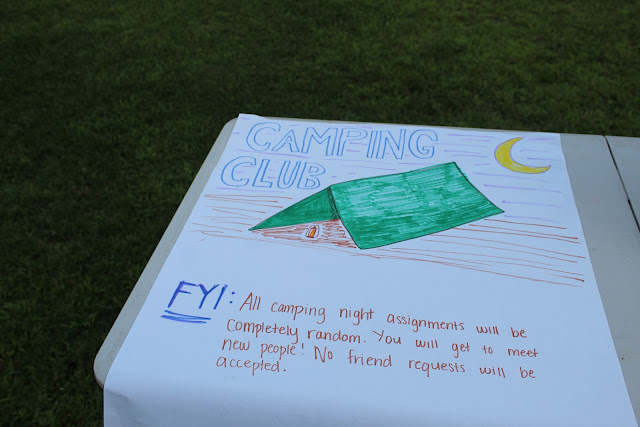 CAMPING
CLUB
FYI: All camping night assignments will be
completely random. You will get to meet
new people! No friend requests will be
accepted.